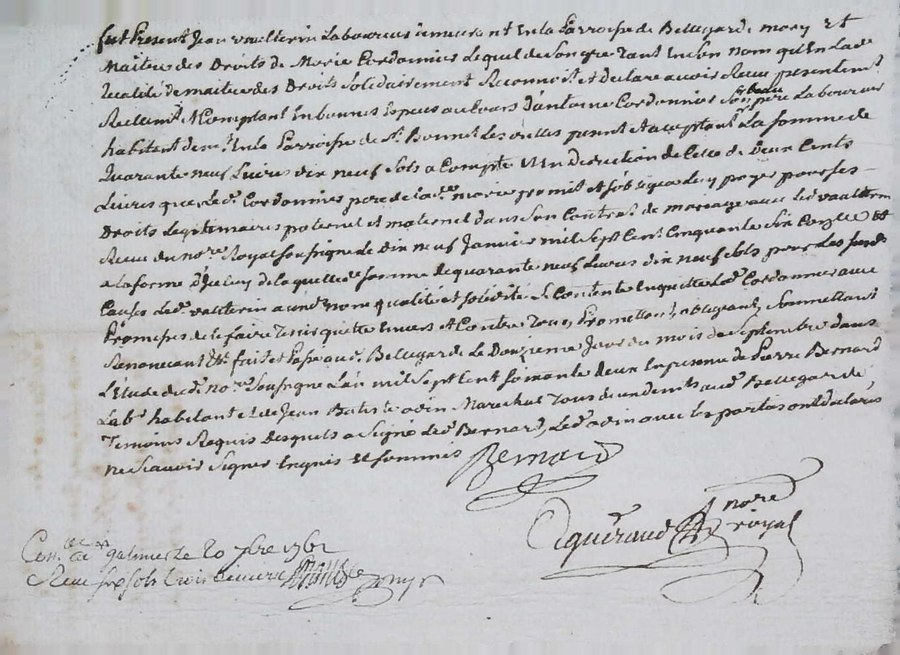 fut Present Jean vaulterin Laboureur demeurant En la Parroisse de Bellegarde mary Et
Maitre des Droits de Marie Cordonnier Lequel de Son gré Tant En Son Nom qu'En Lad.
Qualité de maitre des Droits Solidairement Reconnoit et declare avoir Reçu presentemt
Reelemt et Comptant En bonnes Especes au Cours D'antoine Cordonnier Son beau pere Laboureur
habitant demt En la Parroisse de St Bonnet Les oulles present et acceptant La Somme de
Quarante neuf Livre dix neuf Sols a Compte et En deduction de Celle de Deux Cents
Livres que Led. Cordonnier pere de lad. marie promit et s'obligea Luy payer pour Ses
Droits Legitimaires paternel et maternel dans Son Contrat de mariage avec led. vaulterin
Reçu du nore Royal Soussigne Le Dix neuf Janvier mil Sept Cent Cinquante Six Conzellé Et
a la forme D'Iceluy de laquelle de Somme de quarante neuf Livres dix neuf Sols pour Les Susd.
Causes led. vaulterin aux nom qualité et Solidité Se Contente En quitte Led. Cordonnier avec
Promesses de le faire Tenir quitte Envers et Contre Tous, Promettant, obligeant, Soumettant
Renonceant &c. fait et Passé aud. Bellegarde Le Douzieme Jour du mois de Septembre dans
L'étude dud. nore Soussigne L'an mil Sept Cent Soixante deux En presence de Pierre Bernard
Labr habitant et de Jean Batiste odin Marechal Tous deux demts aud. Bellegarde,
Temoins Requis Desquels a Signé led. Bernard, Led. odin avec les parties ont declarés
ne Scavoir Signer Enquis et Sommés Bernard
Eiguiraud nore
royal
Conlé a St galmier le 20 7bre 1762
Reçu six sols trois deniers